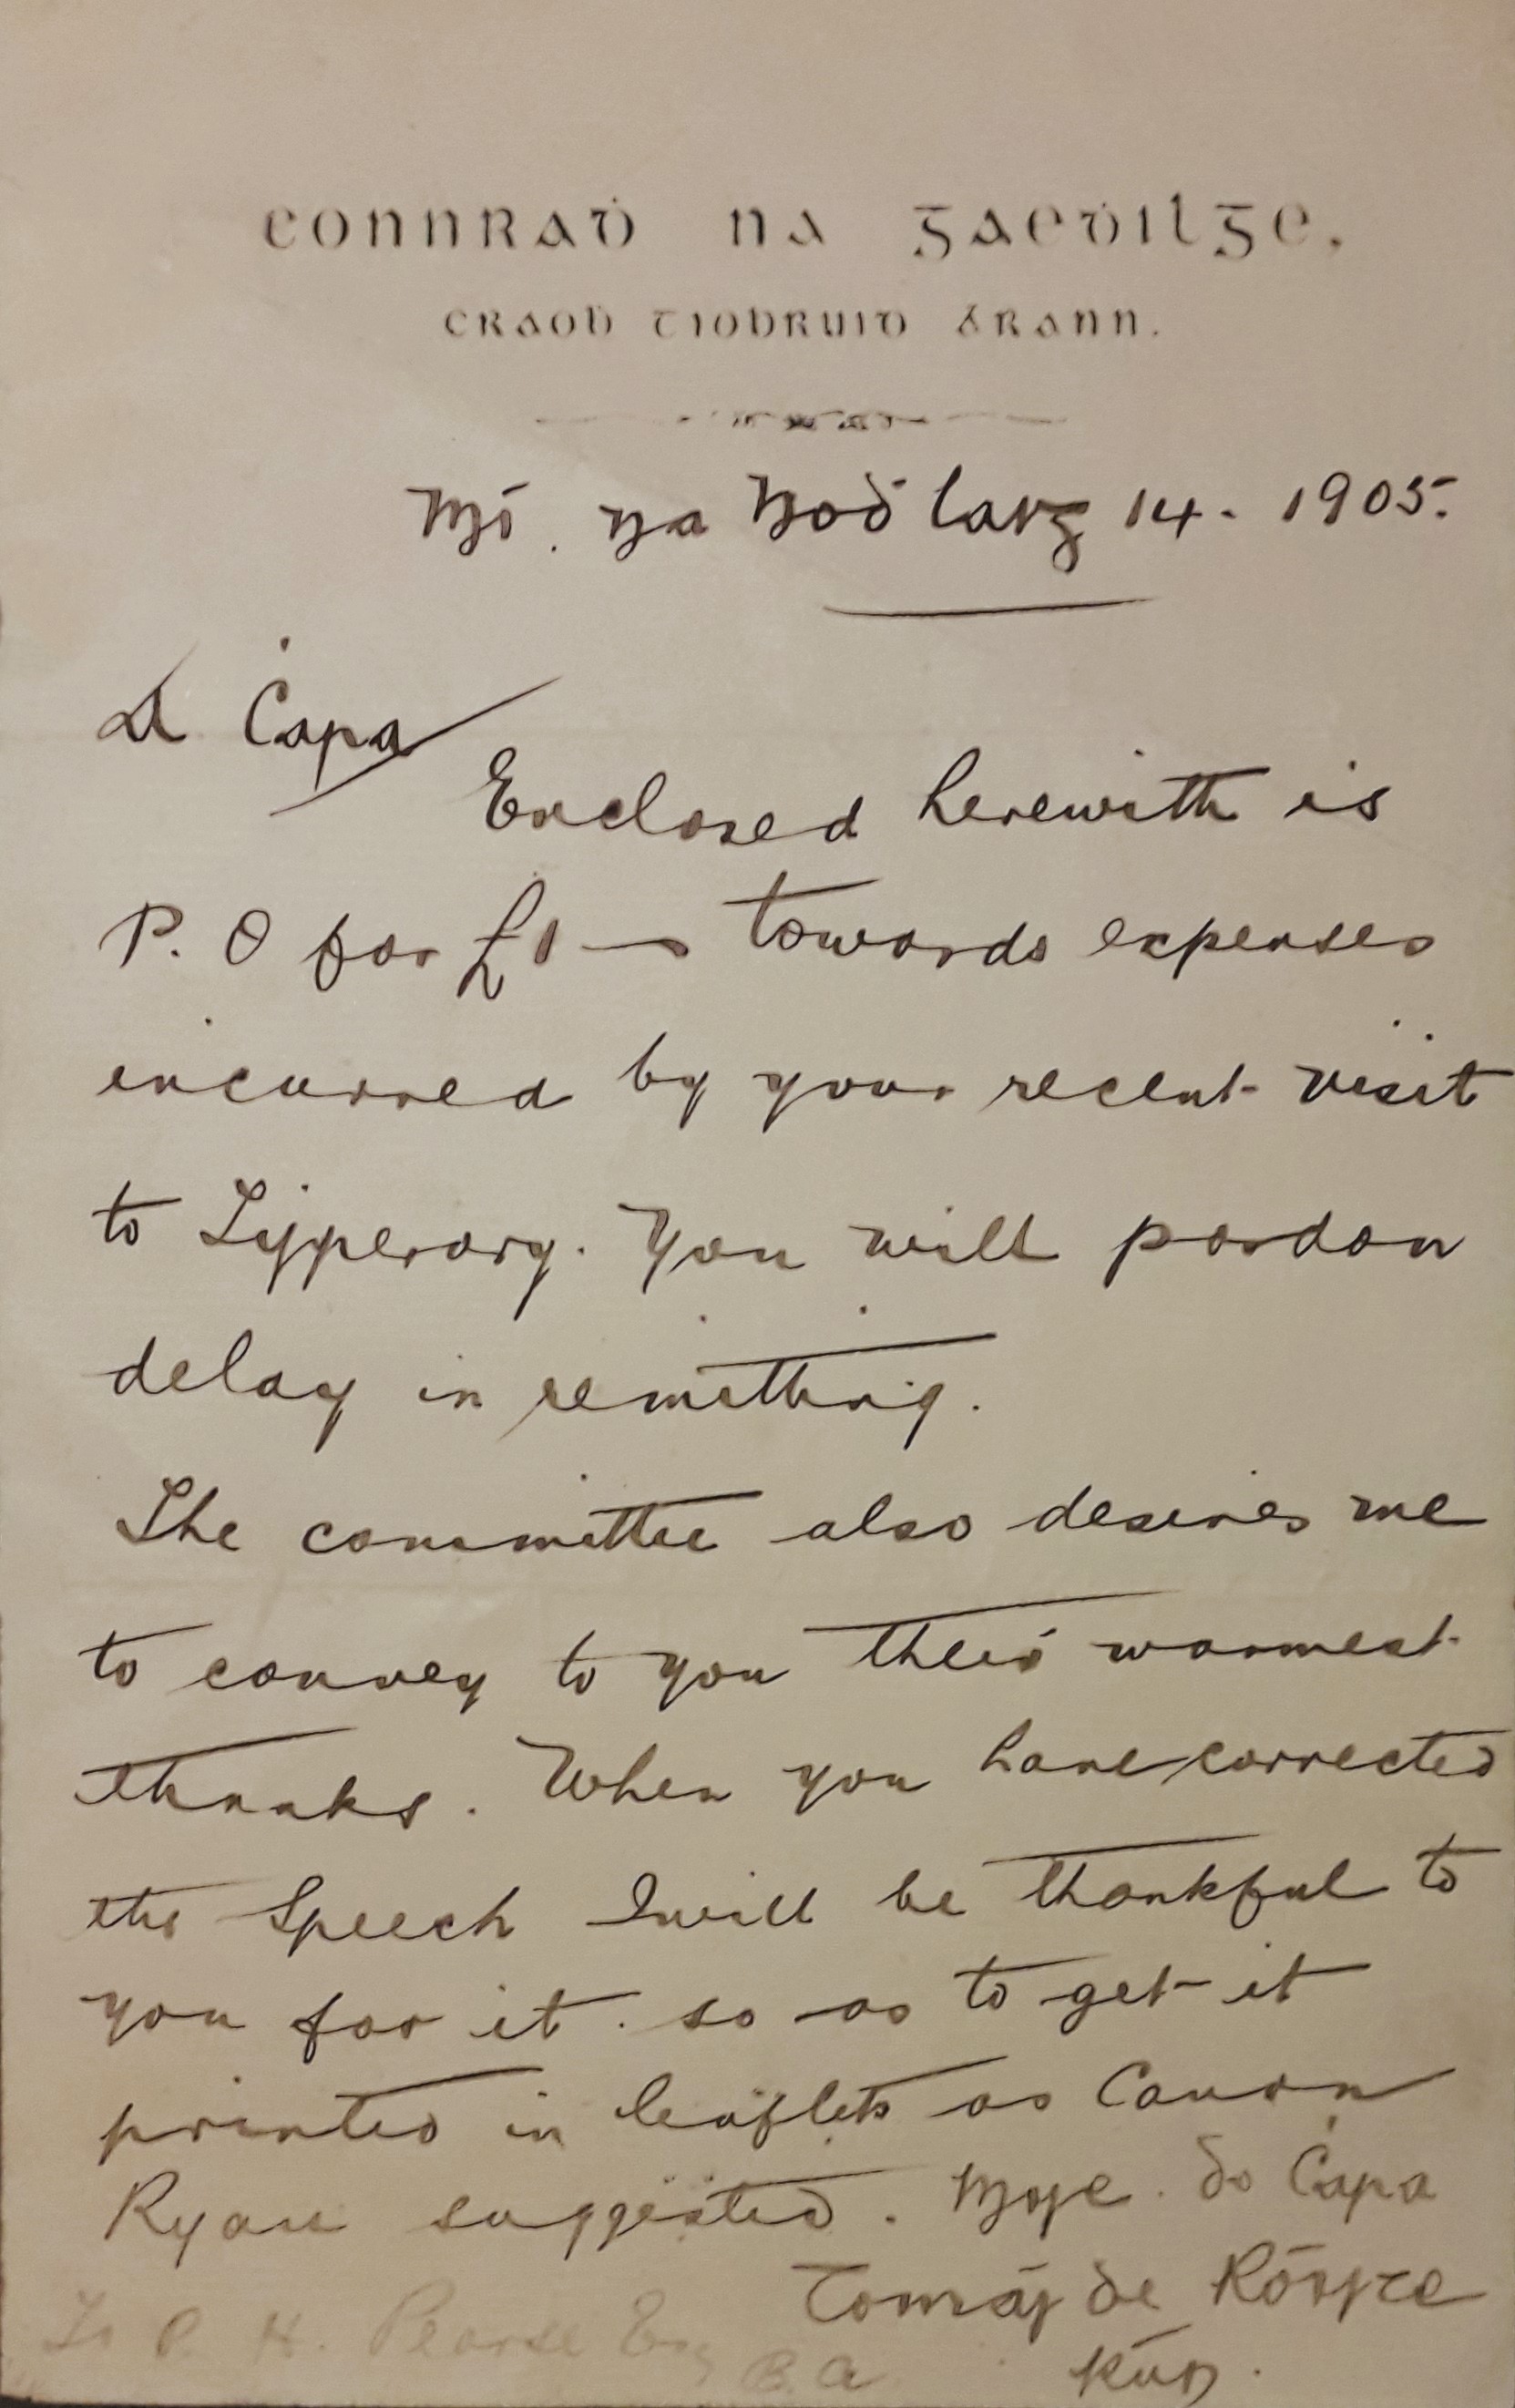 Connraḋ na Gaeḋilge.
Craoḃ Tiobruid Árann.
Mí. na Nodlag 14. 1905.
A Ċara
Enclosed herewith is
P. O for £1— towards expenses
incurred by your recent visit
to Tipperary. You will pardon
delay in remitting.
The committee also desires me
to convey to you their warmest
thanks. When you have corrected
the Speech I will be thankful to
you for it. so as to get it
printed in leaflets as Canon
Ryan suggested. Mise. do Ċara
Tomás de Róiste
Rún.
To P. H. Pearse Esq B.A